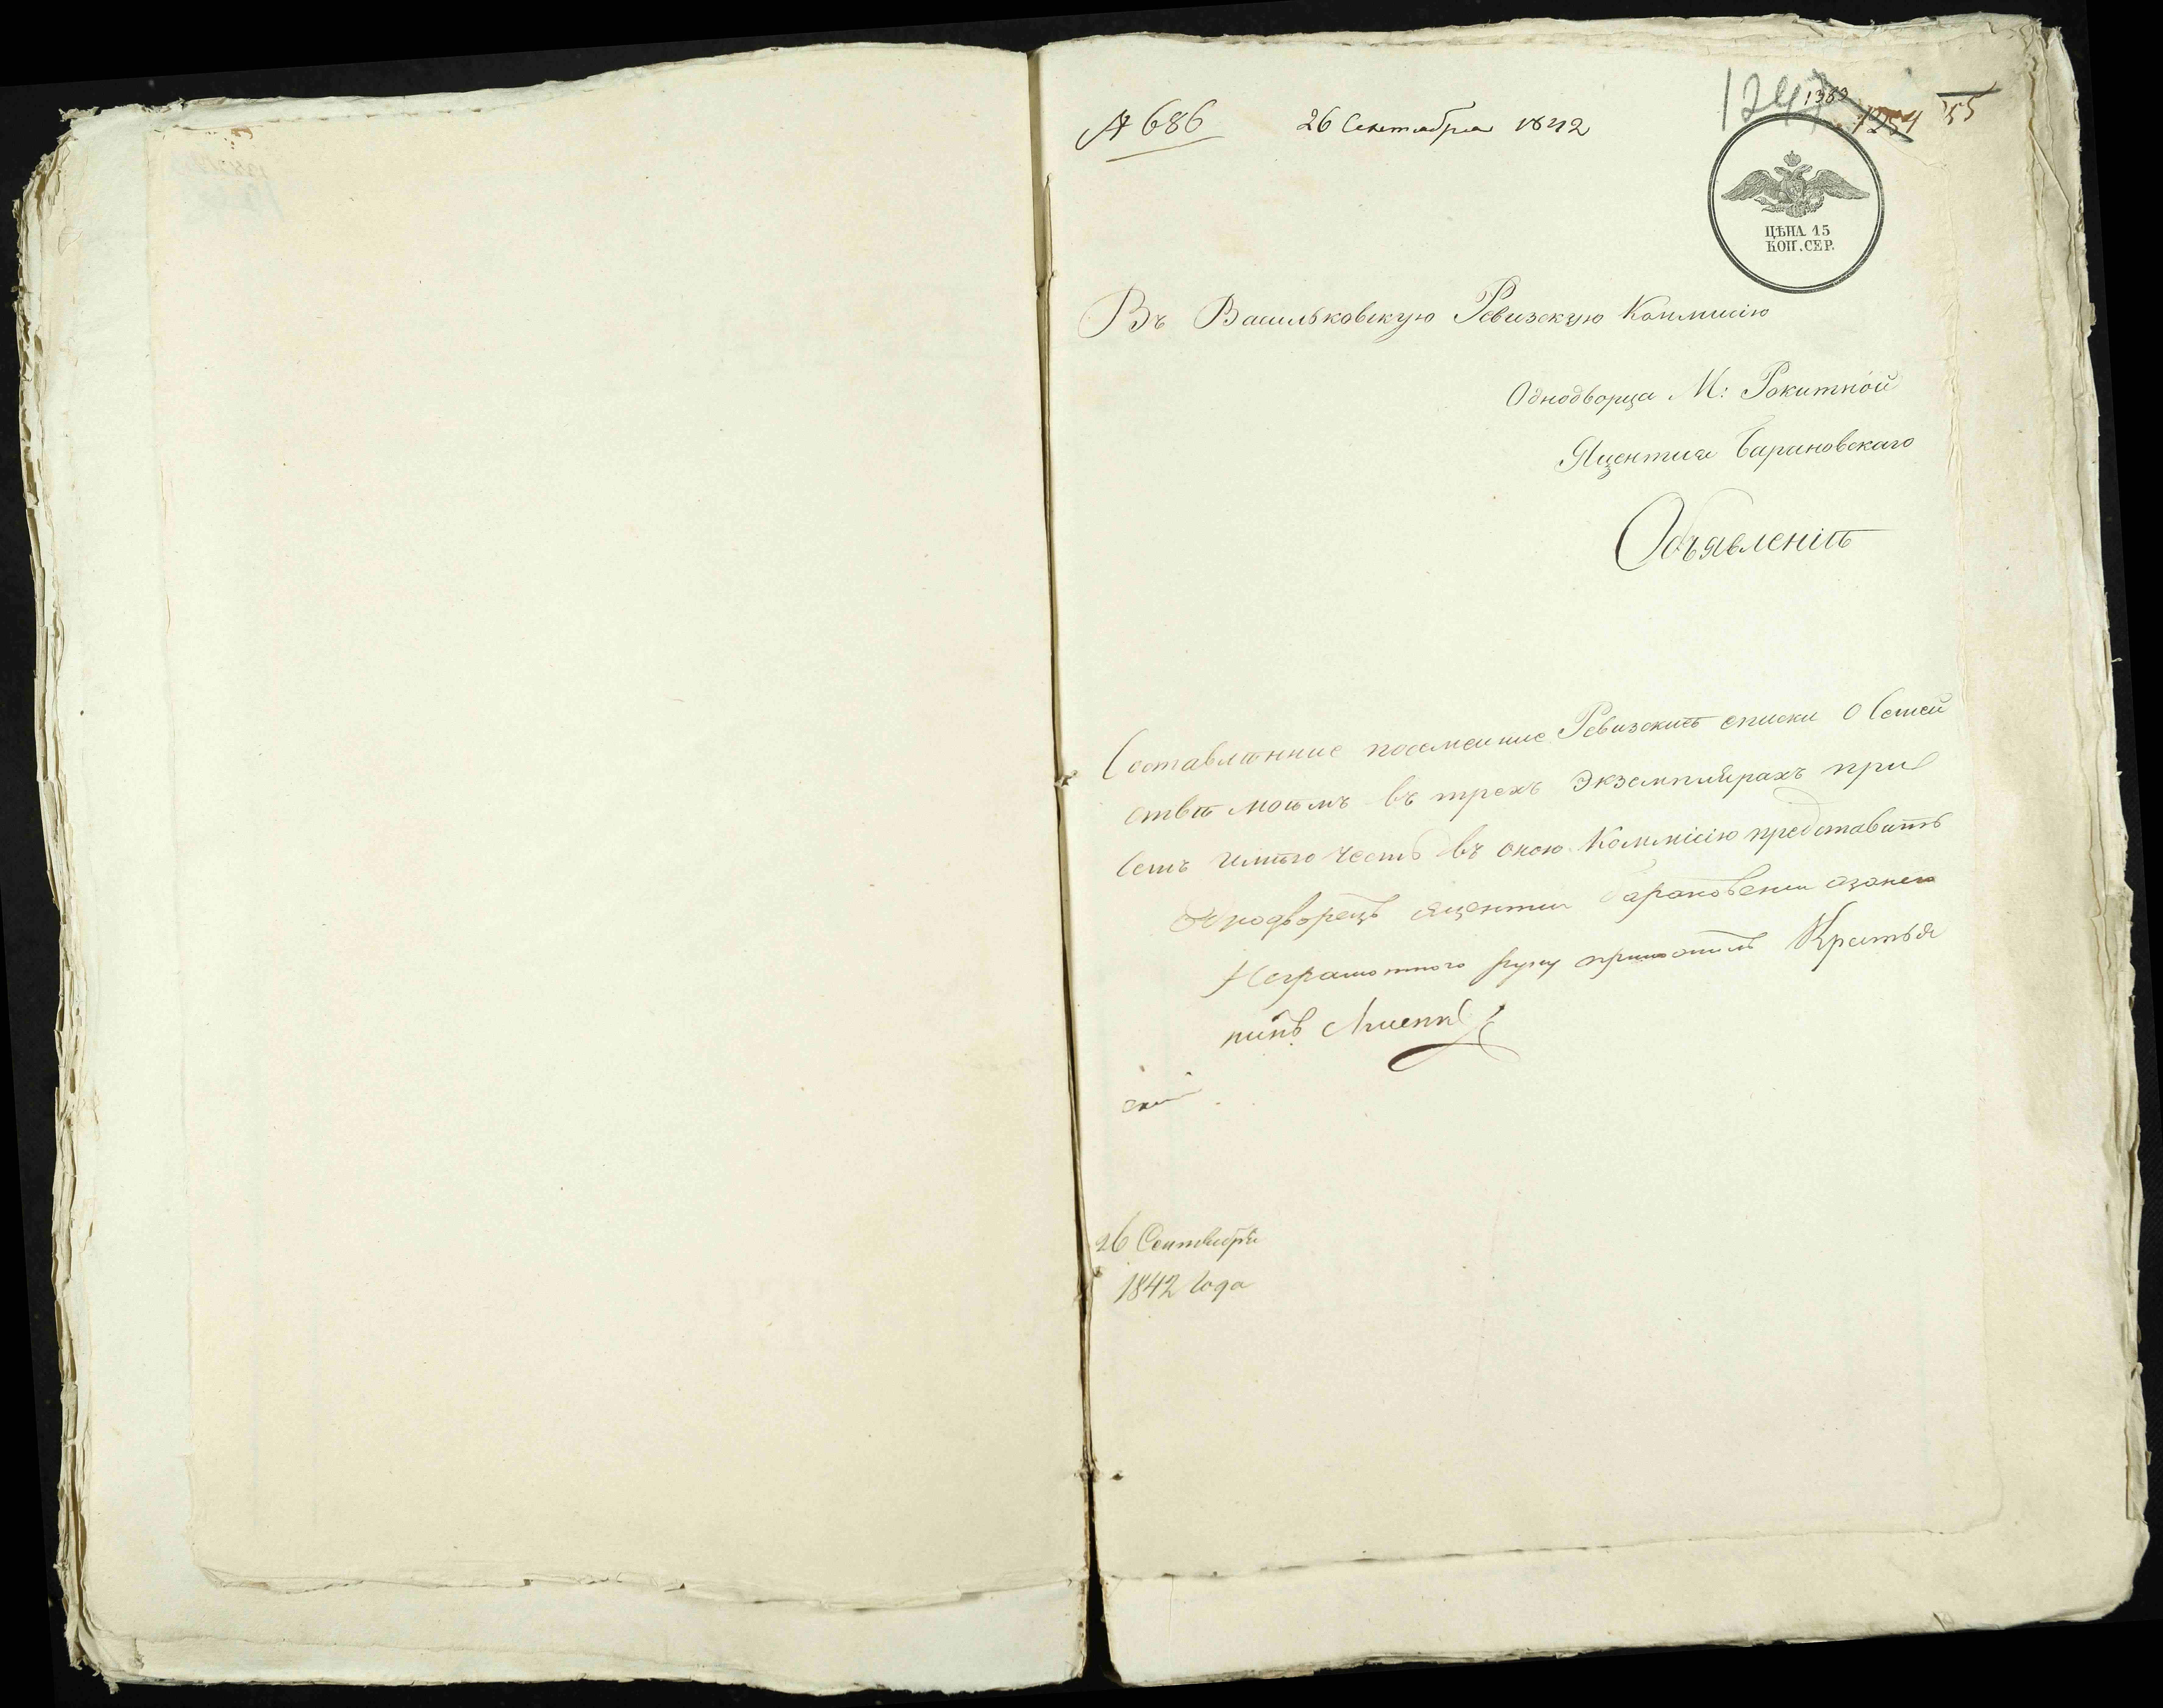 № 686 26 Сентября 1842
1383
1254 55
ЦѢНА 15
КОП. СЕР.
Въ Васильковскую Ревизскую Коммисію
Однодворца М: Рокитной
Яцентия Барановскаго
Объявленіѣ
Составлѣнние посемейние Ревизскиѣ списки о Семей
ствѣ моѣмъ въ трехъ Экземпляряхъ при
семъ имѣю честь въ оною Коммісію представить
Однодворецъ Яцентий Барановский азанего
Неграмотного руку приложилъ Кръстья
нинъ
26 Сентября
1842 Года